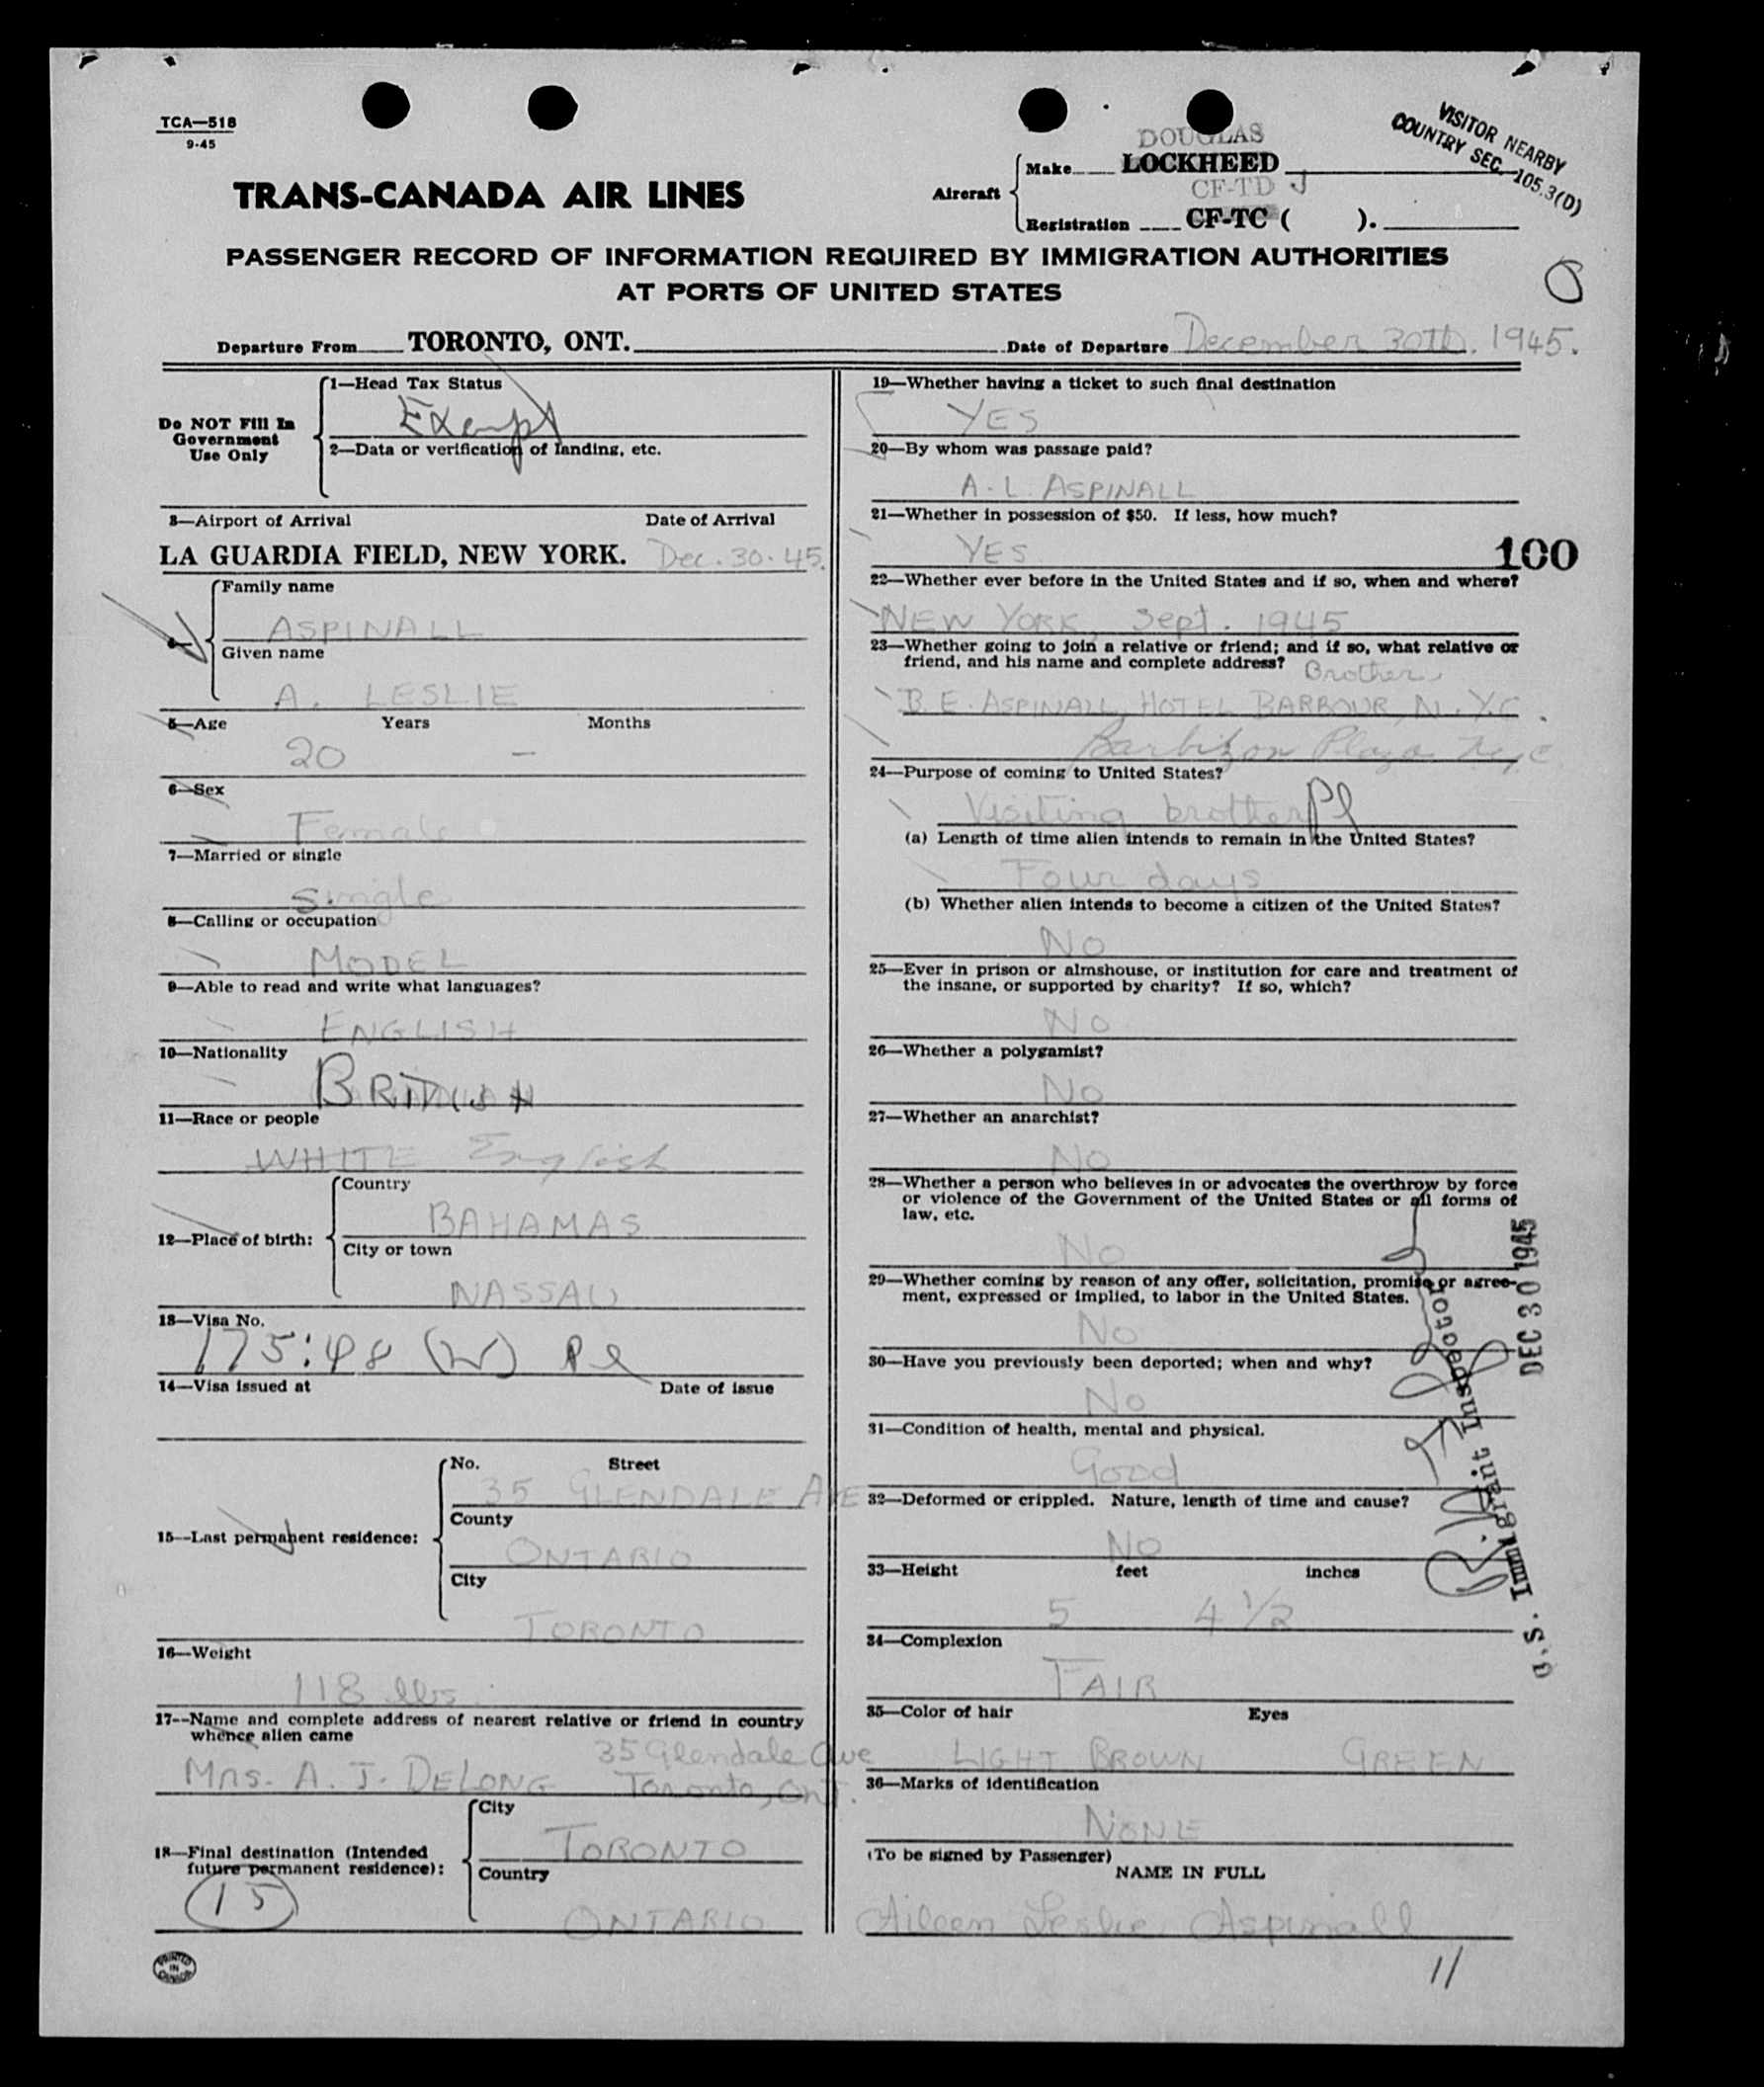 TCA—518
9-45
VISITOR NEARBY
COUNTRY SEC. 105.3(D)
TRANS-CANADA AIR LINES
Aircraft
DOUGLAS
Make LOCKHEED
CF-TD J
Registration CF-TC ( ).
PASSENGER RECORD OF INFORMATION REQUIRED BY IMMIGRATION AUTHORITIES
AT PORTS OF UNITED STATES
Departure From TORONTO, ONT. Date of Departure December 30th, 1945.
Do NOT Fill In
Government
Use Only
1—Head Tax Status
Exempt
2—Data or verification of landing, etc.
3—Airport of Arrival Date of Arrival
LA GUARDIA FIELD, NEW YORK. Dec. 30. 45.
Family name
ASPINALL
Given name
A. LESLIE
5—Age Years Months
20 —
6—Sex
Female
7—Married or single
Single
8—Calling or occupation
MODEL
9—Able to read and write what languages?
ENGLISH
10—Nationality
BRITISH
11—Race or people
WHITE English
12—Place of birth:
Country
BAHAMAS
City or town
NASSAU
13—Visa No.
175:48 (W) Pl
14—Visa issued at Date of issue
15—Last permanent residence:
No. Street
35 GLENDALE AVE
County
ONTARIO
City
TORONTO
16—Weight
118 lbs.
17—Name and complete address of nearest relative or friend in country
whence alien came
35 Glendale Ave
Mrs. A. J. DELONG Toronto, Ont.
18—Final destination (Intended
future permanent residence):
15
City
TORONTO
Country
ONTARIO
PRINTED
IN
CANADA
19—Whether having a ticket to such final destination
YES
20—By whom was passage paid?
A. L. ASPINALL
21—Whether in possession of $50. If less, how much?
YES
100
22—Whether ever before in the United States and if so, when and where?
NEW YORK, Sept. 1945
23—Whether going to join a relative or friend; and if so, what relative or
friend, and his name and complete address? Brother
B. E. ASPINALL, HOTEL BARBOUR, N.Y.C.
Barbizon Plaza NYC
24—Purpose of coming to United States?
Visiting brother Pl
(a) Length of time alien intends to remain in the United States?
Four days
(b) Whether alien intends to become a citizen of the United States?
No
25—Ever in prison or almshouse, or institution for care and treatment of
the insane, or supported by charity? If so, which?
No
26—Whether a polygamist?
No
27—Whether an anarchist?
No
28—Whether a person who believes in or advocates the overthrow by force
or violence of the Government of the United States or all forms of
law, etc.
No
29—Whether coming by reason of any offer, solicitation, promise or agree-
ment, expressed or implied, to labor in the United States.
No
30—Have you previously been deported; when and why?
No
31—Condition of health, mental and physical.
Good
32—Deformed or crippled. Nature, length of time and cause?
No
33—Height feet inches
5 4 1/2
34—Complexion
FAIR
35—Color of hair Eyes
LIGHT BROWN GREEN
36—Marks of identification
NONE
(To be signed by Passenger)
NAME IN FULL
Aileen Leslie Aspinall
11
DEC 30 1945
U.S. Immigrant Inspector